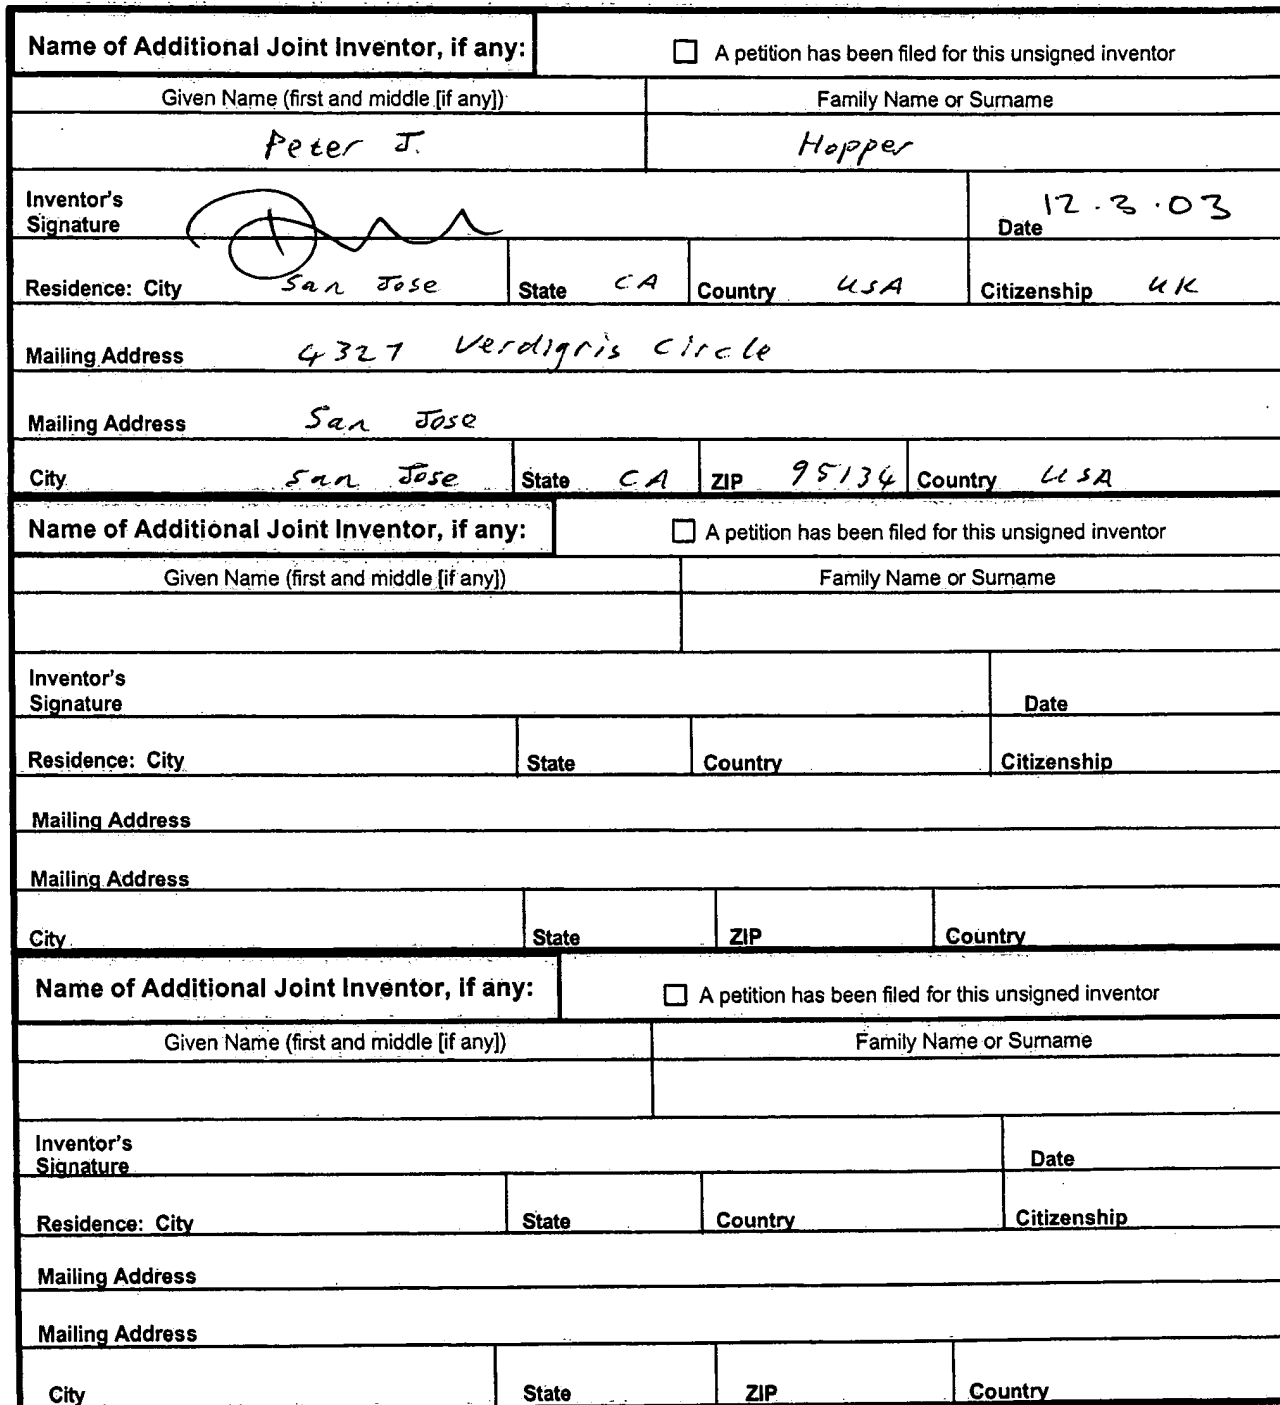 Name of Additional Joint Inventor, if any: A petition has been filed for this unsigned inventor
Given Name (first and middle [if any]) Family Name or Surname
Peter J. Hopper
Inventor's
Signature Date 12.3.03
Residence: City San Jose State CA Country USA Citizenship UK
Mailing Address 4327 Verdigris Circle
Mailing Address San Jose
City San Jose State CA ZIP 95134 Country USA
Name of Additional Joint Inventor, if any: A petition has been filed for this unsigned inventor
Given Name (first and middle [if any]) Family Name or Surname
Inventor's
Signature Date
Residence: City State Country Citizenship
Mailing Address
Mailing Address
City State ZIP Country
Name of Additional Joint Inventor, if any: A petition has been filed for this unsigned inventor
Given Name (first and middle [if any]) Family Name or Surname
Inventor's
Signature Date
Residence: City State Country Citizenship
Mailing Address
Mailing Address
City State ZIP Country